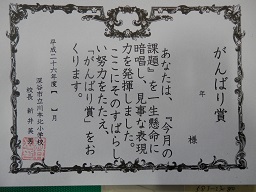 がんばり賞
年
様
あなたは、『今月の
課題』を一生懸命に
暗唱し、見事な表現
力を発揮しました。
ここにそのすばらし
い努力をたたえ、
「がんばり賞」をお
くります。
平成二十六年度〔 〕月
深谷市立川本北小学校
校長 新井